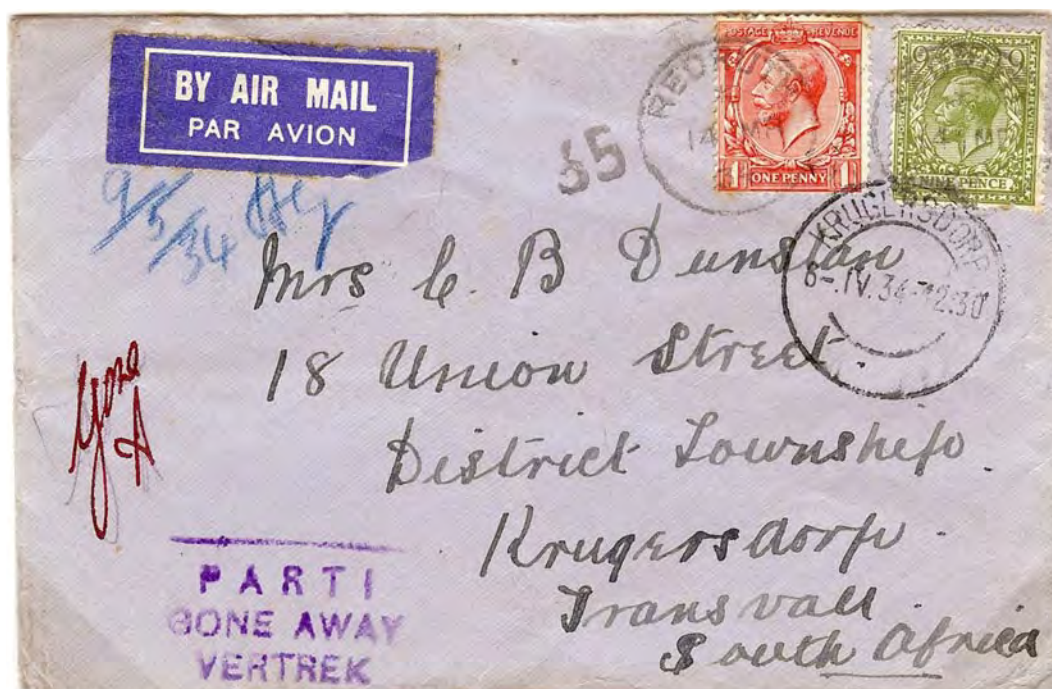 BY AIR MAIL
PAR AVION
POSTAGE REVENUE
1 ONE PENNY 1
9 9
POSTAGE REVENUE
NINE PENCE
REDRUTH
14 MR
65
9/5/34
KRUGERSDORP
6-.IV.34-12.30
Mrs C. B Dunstan
18 Union Street.
District Township.
Krugersdorp.
Transvall.
South Africa
Gone
A
PARTI
GONE AWAY
VERTREK